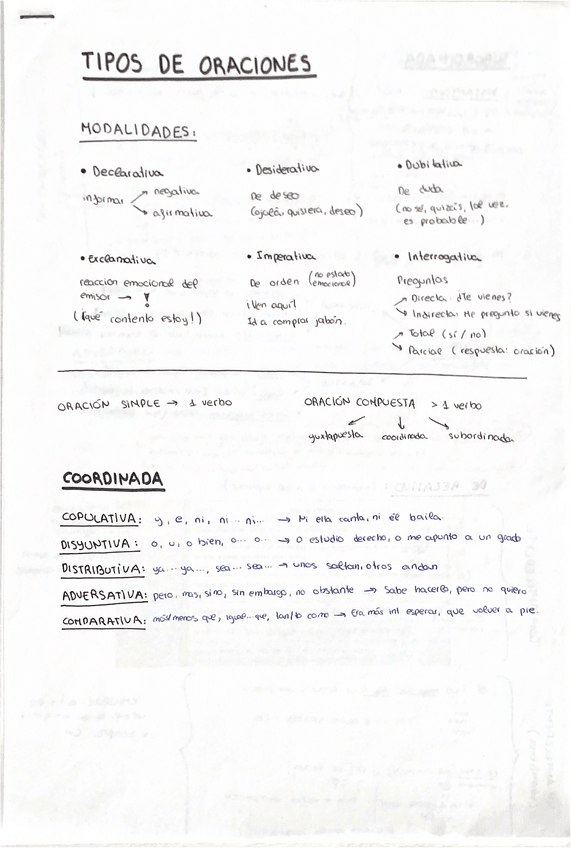 TIPOS DE ORACIONES
MODALIDADES:
• Declarativa
informar
negativa
afirmativa
• Desiderativa
De deseo
(ojalá, quisiera, deseo)
• Dubitativa
De duda
(no sé, quizás, tal vez,
es probable...)
• Exclamativa
reacción emocional del
emisor → !
(¡qué contento estoy!)
• Imperativa
De orden (no estado
emocional)
¡Ven aquí!
Id a comprar jabón.
• Interrogativa
Preguntas
Directa: ¿Te vienes?
Indirecta: Me pregunto si vienes
Total (sí / no)
Parcial (respuesta: oración)
ORACIÓN SIMPLE → 1 verbo
ORACIÓN COMPUESTA > 1 verbo
yuxtapuesta coordinada subordinada
COORDINADA
COPULATIVA: y, e, ni, ni... ni... → Ni ella canta, ni él baila.
DISYUNTIVA: o, u, o bien, o... o... → O estudio derecho, o me apunto a un grado
DISTRIBUTIVA: ya... ya..., sea... sea... → unos saltan, otros andan
ADVERSATIVA: pero, mas, sino, sin embargo, no obstante → Sabe hacerlo, pero no quiero
COMPARATIVA: más/menos que, igual... que, tan/to como → Era más int esperar, que volver a pie.